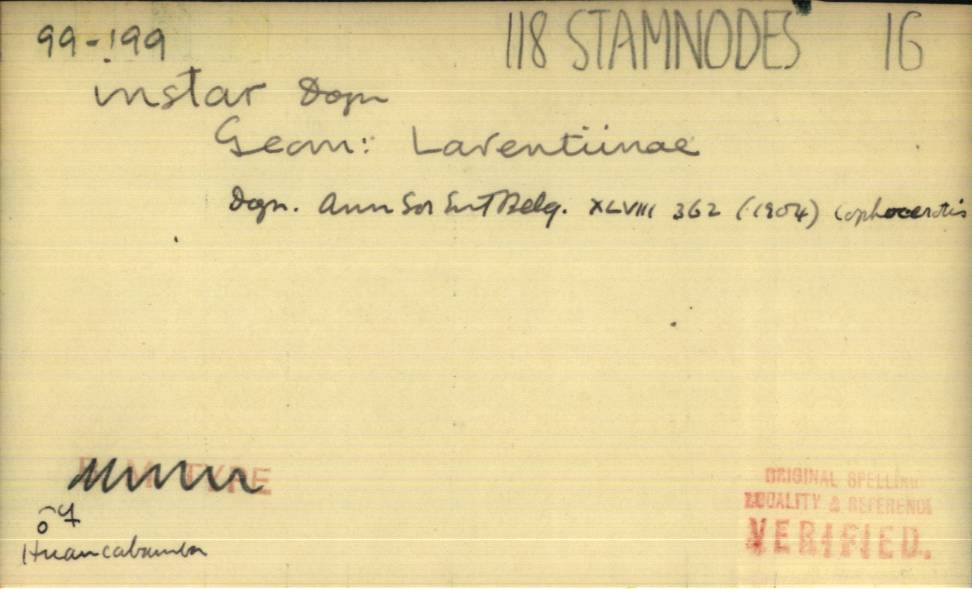 99-199 118 STAMNODES 16
instar Dogn
Geom: Larentiinae
Dogn. Ann Soc Ent Belg. XLVIII 362 (1904) Cophocerotis
B.M. TYPE
♂
Huancabamba
ORIGINAL SPELLING
LOCALITY & REFERENCE
VERIFIED.